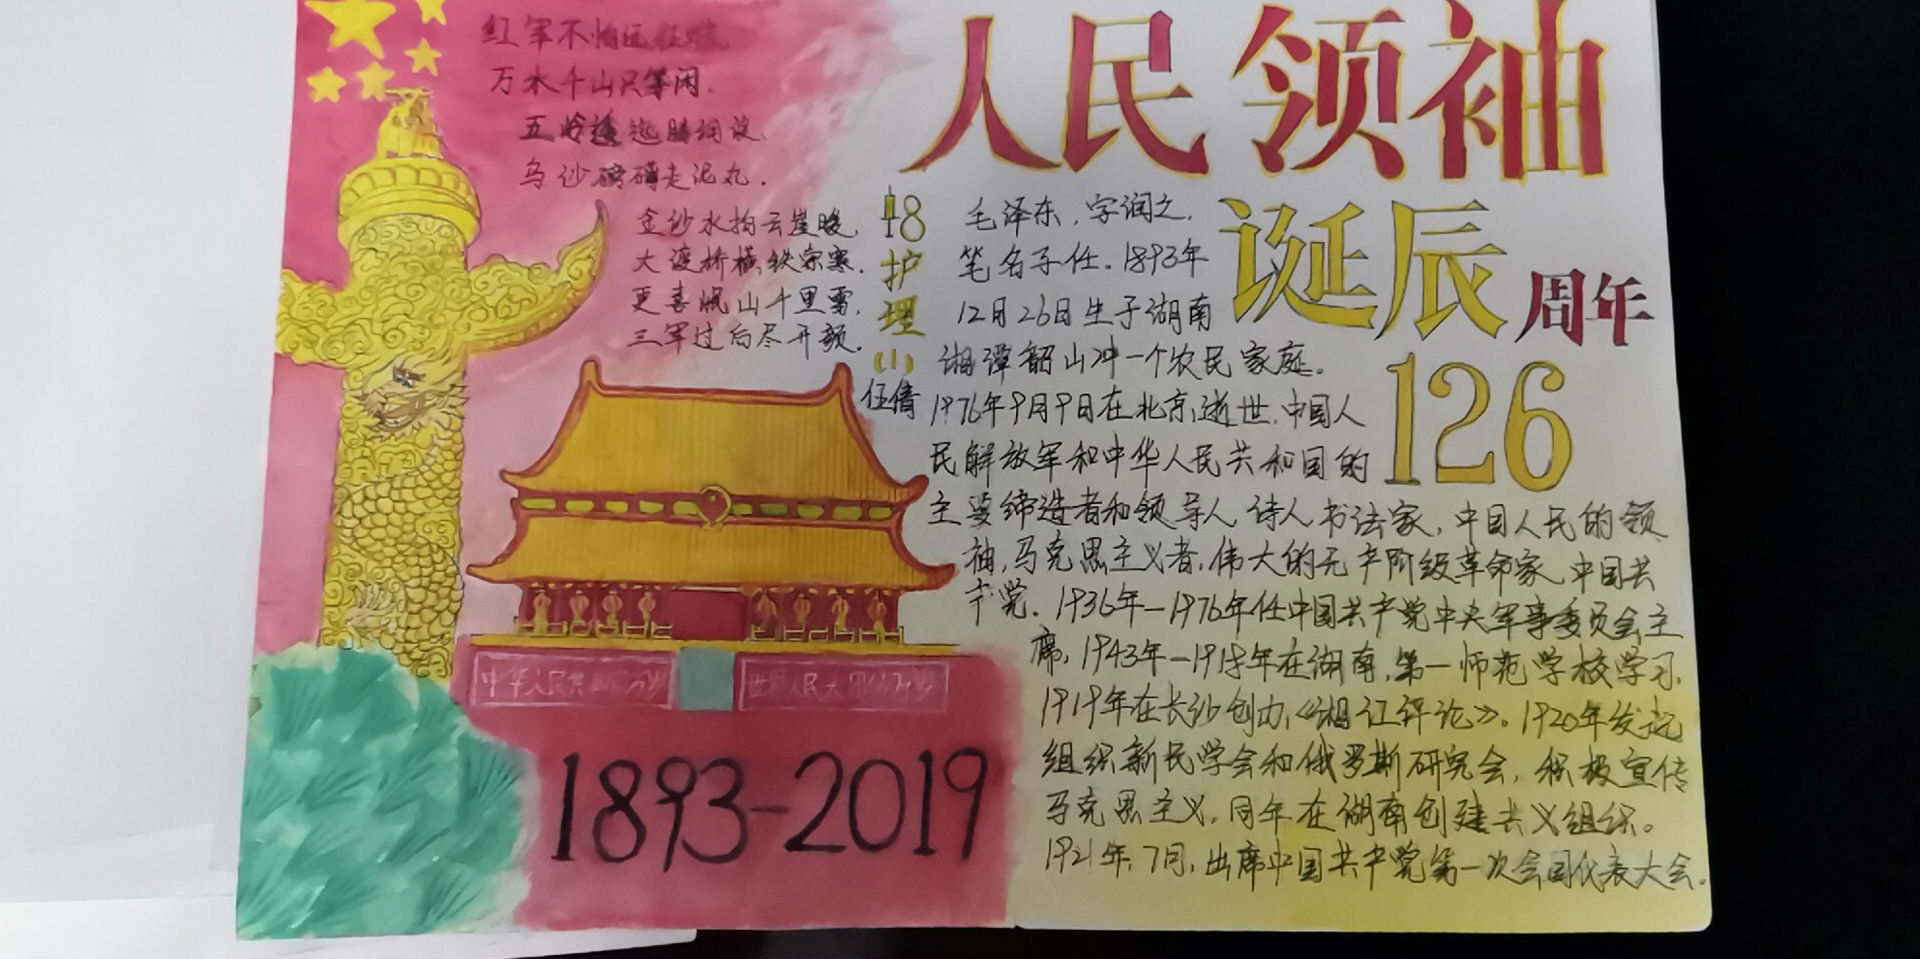 人民领袖
诞辰
周年
126
红军不怕远征难
万水千山只等闲.
五岭逶迤腾细浪.
乌沙磅礴走泥丸.
金沙水拍云崖暖,
大渡桥横铁索寒.
更喜岷山千里雪,
三军过后尽开颜.
18
护
理
(1)
任倩
毛泽东,字润之,
笔名子任.1893年
12月26日生于湖南
湘潭韶山冲一个农民家庭。
1976年9月9日在北京逝世,中国人
民解放军和中华人民共和国的
主要缔造者和领导人 诗人 书法家,中国人民的领
袖,马克思主义者,伟大的无产阶级革命家 中国共
产党.1936年—1976年任中国共产党中央军事委员会主
席,1943年—1918年在湖南,第一师范学校学习,
1919年在长沙创办《湘江评论》。1920年发起
组织新民学会和俄罗斯研究会,积极宣传
马克思主义,同年在湖南创建共义组织。
1921年,7月,出席中国共中党第一次全国代表大会.
中华人民共和国万岁
世界人民大团结万岁
1893-2019